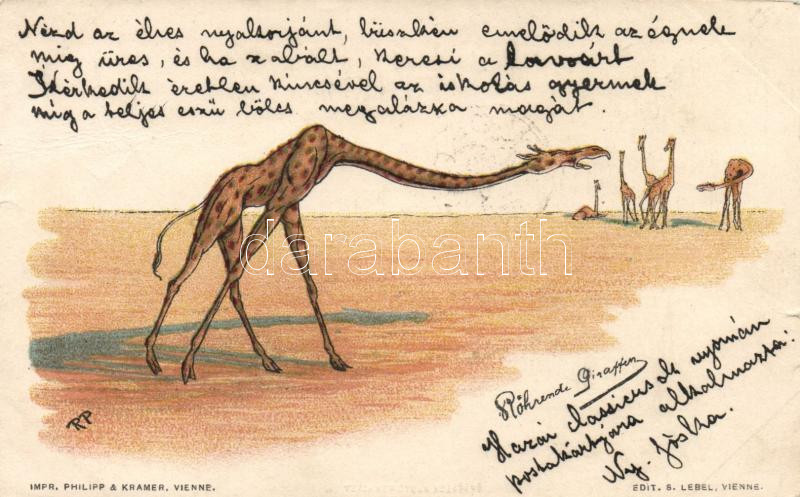 Nézd az éhes nyakorjánt, büszkén emelődik az égnek
míg üres, és ha zabált, keresi a
Kérkedik éretlen kincsével az iskolás gyermek
míg a teljes eszű bölcs megalázza magát.
darabanth
Röhrende Giraffen
Hazai classicus után nyomán
postakártyára alkalmazta:
Ny. Jóska.
RP
IMPR. PHILIPP & KRAMER, VIENNE.
EDIT. S. LEBEL, VIENNE.